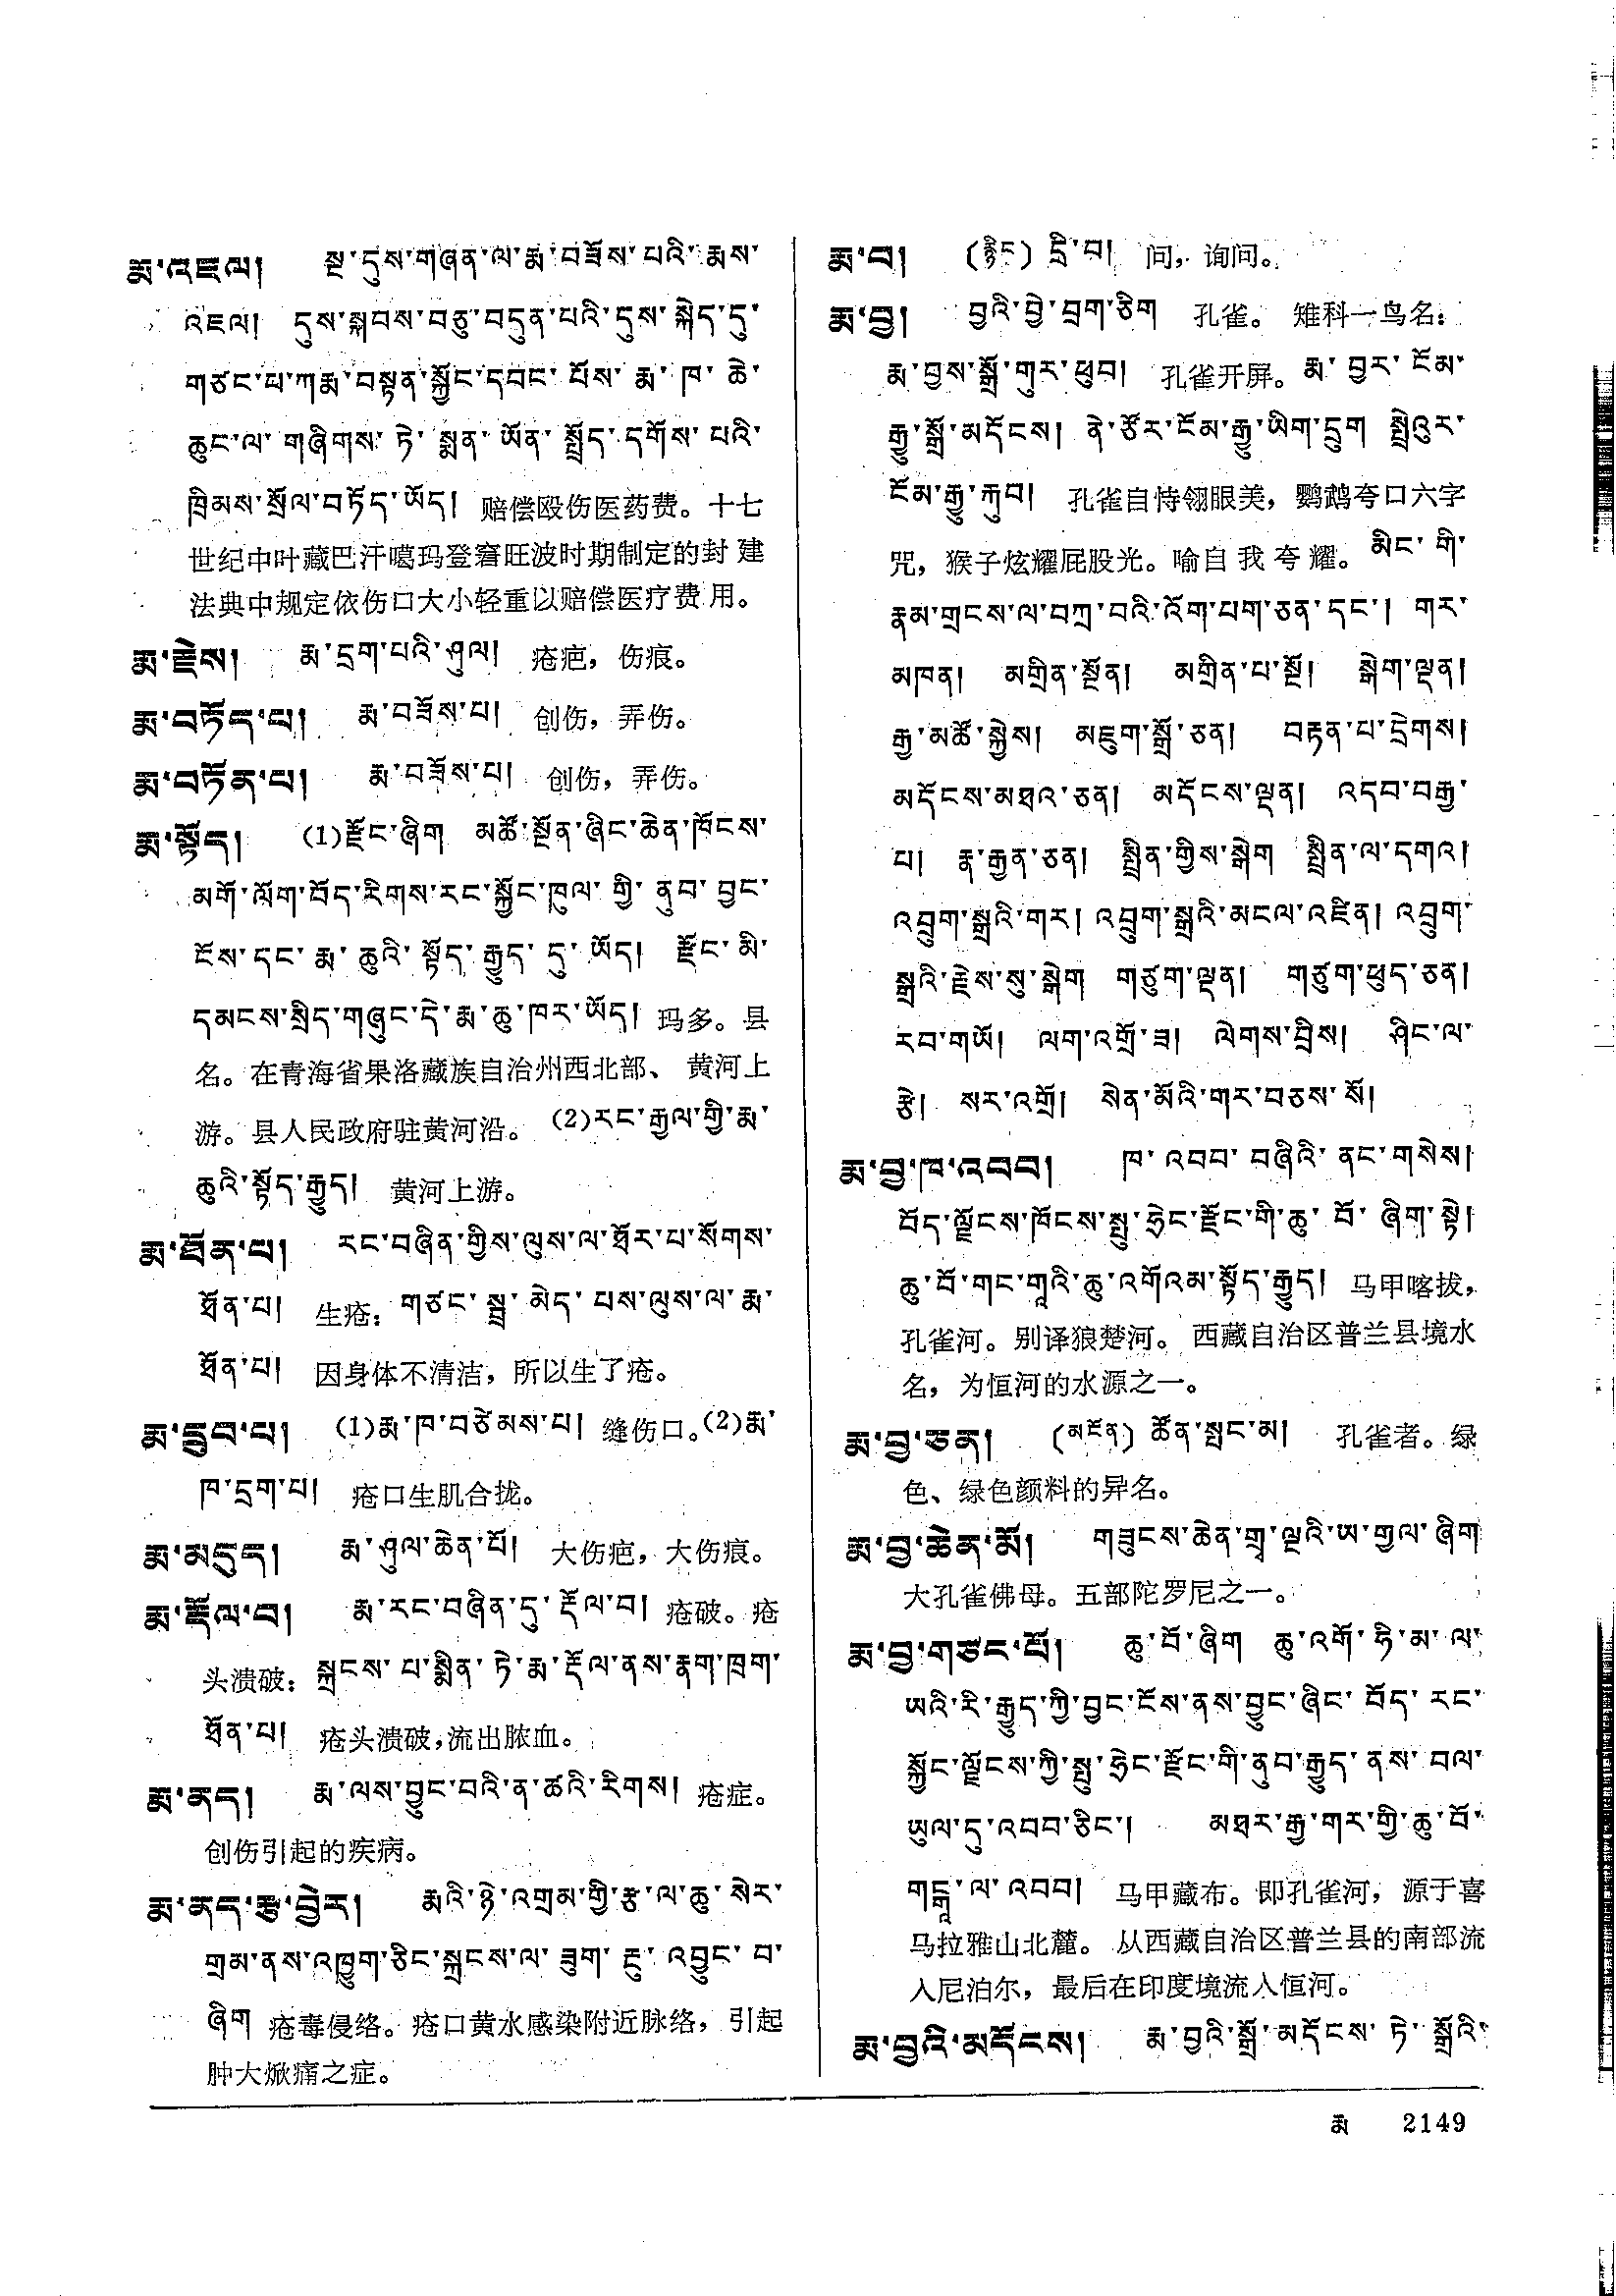 རྨ་འཇལ། སྔ་དུས་གཞན་ལ་རྨ་བཟོས་པའི་རྨས་
འཇལ། དུས་སྐབས་བཅུ་བདུན་པའི་དུས་སྐེད་དུ་
གཙང་པ་ཀརྨ་བསྟན་སྐྱོང་དབང་པོས་རྨ་ཁ་ཆེ་
ཆུང་ལ་གཞིགས་ཏེ་སྨན་ཡོན་སྤྲོད་དགོས་པའི་
ཁྲིམས་སྲོལ་བཏོད་ཡོད། 赔偿殴伤医药费。十七
世纪中叶藏巴汗噶玛登窘旺波时期制定的封建
法典中规定依伤口大小轻重以赔偿医疗费用。
རྨ་རྗེས། རྨ་དྲག་པའི་ཤུལ། 疮疤，伤痕。
རྨ་བཏོད་པ། རྨ་བཟོས་པ། 创伤，弄伤。
རྨ་བཏོན་པ། རྨ་བཟོས་པ། 创伤，弄伤。
རྨ་སྟོད། (1)རྫོང་ཞིག མཚོ་སྔོན་ཞིང་ཆེན་ཁོངས་
མགོ་ལོག་བོད་རིགས་རང་སྐྱོང་ཁུལ་གྱི་ནུབ་བྱང་
ངོས་དང་རྨ་ཆུའི་སྟོད་རྒྱུད་དུ་ཡོད། རྫོང་མི་
དམངས་སྲིད་གཞུང་དེ་རྨ་ཆུ་ཁར་ཡོད། 玛多。县
名。在青海省果洛藏族自治州西北部、黄河上
游。县人民政府驻黄河沿。(2)རང་རྒྱལ་གྱི་རྨ་
ཆུའི་སྟོད་རྒྱུད། 黄河上游。
རྨ་ཐོན་པ། རང་བཞིན་གྱིས་ལུས་ལ་ཐོར་པ་སོགས་
ཐོན་པ། 生疮：གཙང་སྦྲ་མེད་པས་ལུས་ལ་རྨ་
ཐོན་པ། 因身体不清洁，所以生了疮。
རྨ་དྲུབ་པ། (1)རྨ་ཁ་བཙེམས་པ། 缝伤口。(2)རྨ་
ཁ་དྲག་པ། 疮口生肌合拢。
རྨ་མདུད། རྨ་ཤུལ་ཆེན་པོ། 大伤疤，大伤痕。
རྨ་རྡོལ་བ། རྨ་རང་བཞིན་དུ་རྡོལ་བ། 疮破。疮
头溃破：སྐྲངས་པ་སྨིན་ཏེ་རྨ་རྡོལ་ནས་རྣག་ཁྲག་
ཐོན་པ། 疮头溃破，流出脓血。
རྨ་ནད། རྨ་ལས་བྱུང་བའི་ན་ཚའི་རིགས། 疮症。
创伤引起的疾病。
རྨ་ནད་རྩ་བྱེར། རྨའི་ཉེ་འགྲམ་གྱི་རྩ་ལ་ཆུ་སེར་
གྲམ་ནས་འཁྱུག་ཅིང་སྐྲངས་ལ་ཟུག་རྔུ་འབྱུང་བ་
ཞིག 疮毒侵络。疮口黄水感染附近脉络，引起
肿大焮痛之症。
རྨ་བ། (རྙིང) དྲི་བ། 问，询问。
རྨ་བྱ། བྱའི་བྱེ་བྲག་ཅིག 孔雀。雉科一鸟名：
རྨ་བྱས་སྒྲོ་གུར་ཕུབ། 孔雀开屏。རྨ་བྱར་ངོམ་
རྒྱུ་སྒྲོ་མདོངས། ནེ་ཙོར་ངོམ་རྒྱུ་ཡིག་དྲུག སྤྲེའུར་
ངོམ་རྒྱུ་རྐུབ། 孔雀自恃翎眼美，鹦鹉夸口六字
咒，猴子炫耀屁股光。喻自我夸耀。མིང་གི་
རྣམ་གྲངས་ལ་བཀྲ་བའི་འོག་པག་ཅན་དང་། གར་
མཁན། མགྲིན་སྔོན། མགྲིན་པ་སྔོ། སྒེག་ལྡན།
རྒྱ་མཚོ་སྐྱེས། མཇུག་སྒྲོ་ཅན། བརྟན་པ་དྲེགས།
མདོངས་མཐའ་ཅན། མདོངས་ལྡན། འདབ་བརྒྱ་
པ། རྣ་རྒྱན་ཅན། སྤྲིན་གྱིས་སྒེག སྤྲིན་ལ་དགའ།
འབྲུག་སྒྲའི་གར། འབྲུག་སྒྲའི་མངལ་འཛིན། འབྲུག་
སྒྲའི་རྗེས་སུ་སྒེག གཙུག་ལྡན། གཙུག་ཕུད་ཅན།
རབ་གཡོ། ལག་འགྲོ་ཟ། ལེགས་བྲིས། ཤིང་ལ་
རྩེ། སར་འགྲོ། སེན་མོའི་གར་བཅས་སོ།
རྨ་བྱ་ཁ་འབབ། ཁ་འབབ་བཞིའི་ནང་གསེས།
བོད་ལྗོངས་ཁོངས་སྤུ་ཧྲེང་རྫོང་གི་ཆུ་བོ་ཞིག་སྟེ།
ཆུ་བོ་གང་གཱའི་ཆུ་འགོའམ་སྟོད་རྒྱུད། 马甲喀拔，
孔雀河。别译狼楚河。西藏自治区普兰县境水
名，为恒河的水源之一。
རྨ་བྱ་ཅན། (མངོན) ཚོན་སྤང་མ། 孔雀者。绿
色、绿色颜料的异名。
རྨ་བྱ་ཆེན་མོ། གཟུངས་ཆེན་གྲྭ་ལྔའི་ཨ་གྱལ་ཞིག
大孔雀佛母。五部陀罗尼之一。
རྨ་བྱ་གཙང་པོ། ཆུ་བོ་ཞིག ཆུ་འགོ་ཧི་མ་ལ་
ཡའི་རི་རྒྱུད་ཀྱི་བྱང་ངོས་ནས་བྱུང་ཞིང་བོད་རང་
སྐྱོང་ལྗོངས་ཀྱི་སྤུ་ཧྲེང་རྫོང་གི་ནུབ་རྒྱུད་ནས་བལ་
ཡུལ་དུ་འབབ་ཅིང་། མཐར་རྒྱ་གར་གྱི་ཆུ་བོ་
གངྒཱ་ལ་འབབ། 马甲藏布。即孔雀河，源于喜
马拉雅山北麓。从西藏自治区普兰县的南部流
入尼泊尔，最后在印度境流入恒河。
རྨ་བྱའི་མདོངས། རྨ་བྱའི་སྒྲོ་མདོངས་ཏེ་སྒྲོའི་
རྨ 2149